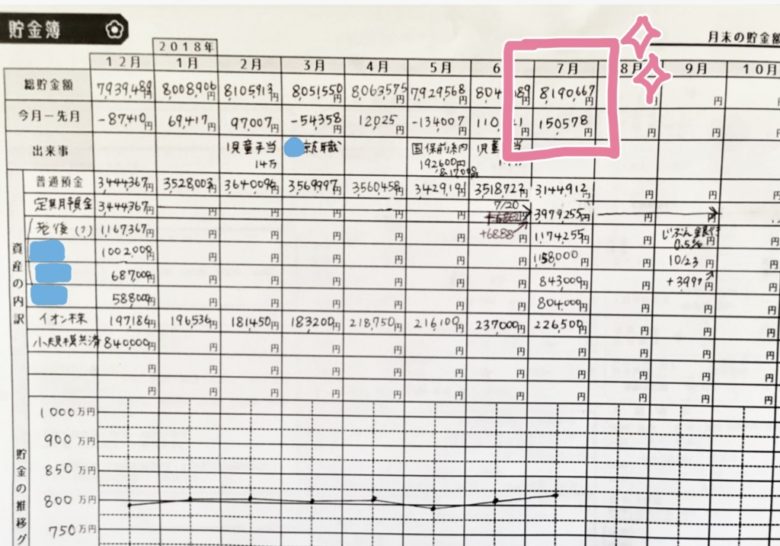 貯金簿
月末の貯金額
2018年
12月 1月 2月 3月 4月 5月 6 7月 8月 9月 10月
総貯金額 7939489円 8,008906円 8105913円 8051550円 8,063575円 7,929,568円 804 89円 8,190,667円 円 円
今月ー先月 -87,410円 69,417円 97,007円 -54358円 12,025円 -134007円 110, 21円 150578円 円 円
出来事 児童手当 転職 国保前納 児童 当
14万 192600円
普通預金 3444367円 3528003円 3640096円 3569997円 3560458円 3429191円 3518727円 3144912円 円 円
定期預金 3,444,367円 7/20 3979255円
老後(?) 1,167367円 +6888円 1,174255円 じぶん銀行
0.5%
1002,000円 1,158,000円 10/23 円
687,000円 843,000円 +3999円
588,000円 804,000円
イオン株 197,186円 196,536円 181450円 183200円 218,750円 216100円 237000円 226,500円 円 円
小規模共済 840,000円 円 円 円 円 円 円 円 円 円
円 円 円 円 円 円 円 円 円 円
円 円 円 円 円 円 円 円 円 円
資産の内訳
1000万円
900万円
850万円
800万円
750万円
貯金の推移グ